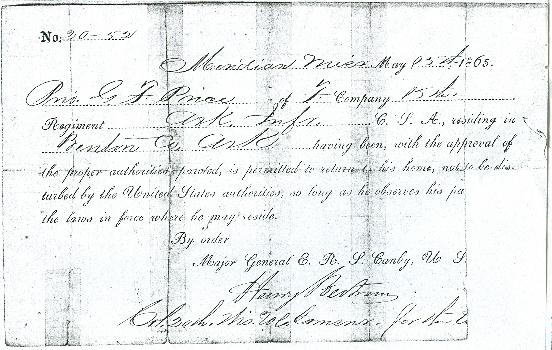 No. 20-52
Meridian Miss May 1865.
Priv. G F Price of F Company 15th
Regiment Ark Infr C. S. A., residing in
Benton Co Ark having been, with the approval of
the proper authorities, paroled, is permitted to return to his home, not to be dis-
turbed by the United States authorities, so long as he observes his pa
the laws in force where he may reside.
By order
Major General E. R. S. Canby, U. S
Henry Bertram
Col 20th Wis. Vol.